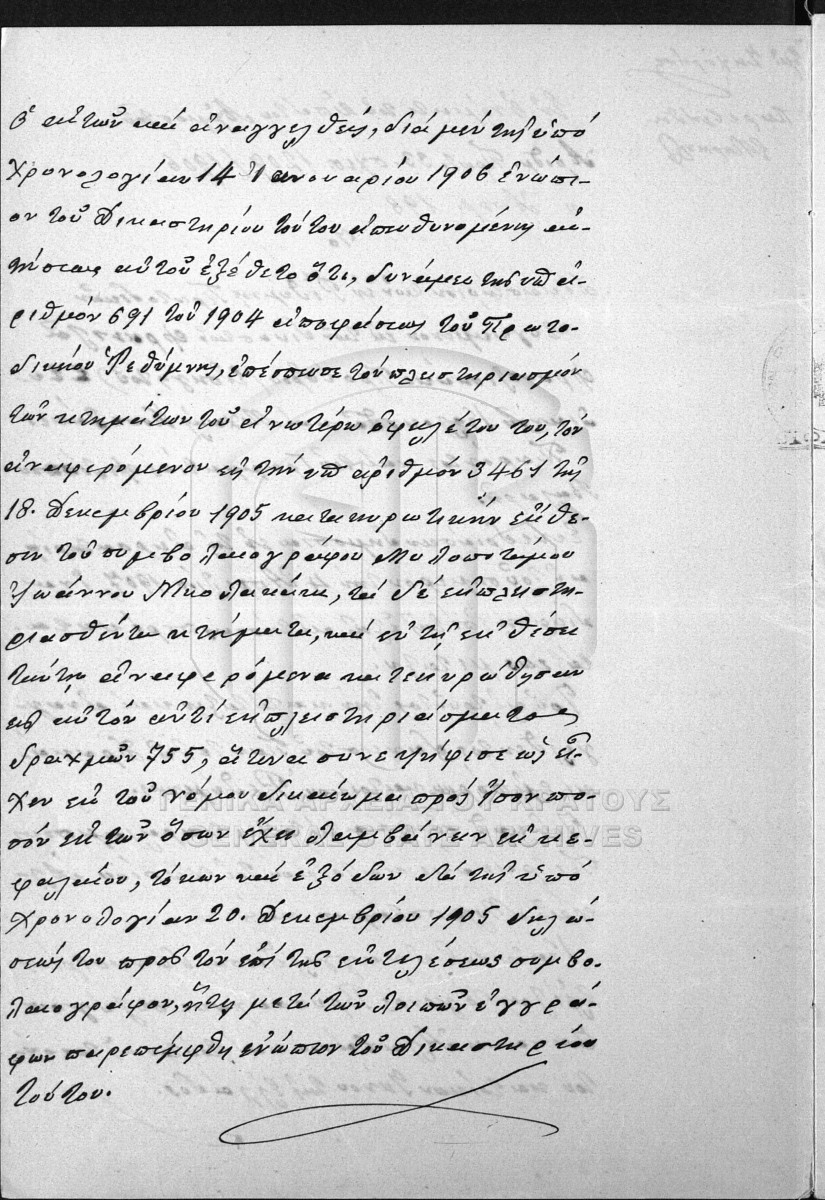 Ὁ αἰτῶν καὶ ἀναγγελθείς, διὰ μὲν τῆς ὑπὸ
χρονολογίαν 14 Ἰανουαρίου 1906 ἐνώπι-
ον τοῦ Δικαστηρίου τούτου ἀπευθυνομένης αἰ-
τήσεως αὐτοῦ ἐξέθετο ὅτι, δυνάμει τῆς ὑπ' ἀ-
ριθμὸν 691 τοῦ 1904 ἀποφάσεως τοῦ Πρωτο-
δικείου Ῥεθύμνης, ἐπέσπευσε τὸν πλειστηριασμὸν
τῶν κτημάτων τοῦ ἀνωτέρω ὀφειλέτου του, τὸν
ἀναφερόμενον εἰς τὴν ὑπ' ἀριθμὸν 3461 τῆς
18. Δεκεμβρίου 1905 κατακυρωτικὴν ἔκθε-
σιν τοῦ συμβολαιογράφου Μυλοποτάμου
Ἰωάννου Νικολακάκι, τὰ δὲ ἐκπλειστη-
ριασθέντα κτήματα, καὶ ἐν τῇ ἐκθέσει
ταύτῃ ἀναφερόμενα κατεκυρώθησαν
εἰς αὐτὸν ἀντὶ ἐκπλειστηριάσματος
δραχμῶν 755, ἅτινα συνεψήφισε ὡς εἶ-
χεν ἐκ τοῦ νόμου δικαίωμα πρὸς ἴσον πο-
σὸν ἐκ τῶν ὅσων ἔχει λαμβάνειν ἐκ κε-
φαλαίου, τόκων καὶ ἐξόδων διὰ τῆς ὑπὸ
χρονολογίαν 20. Δεκεμβρίου 1905 δηλώ-
σεώς του πρὸς τὸν ἐπὶ τῆς ἐκτελέσεως συμβο-
λαιογράφον, ἥτις μετὰ τῶν λοιπῶν ἐγγρά-
φων παρεπέμφθη ἐνώπιον τοῦ Δικαστηρίου
τούτου.
ΓΕΝΙΚΑ ΑΡΧΕΙΑ ΤΟΥ ΚΡΑΤΟΥΣ
GENERAL STATE ARCHIVES